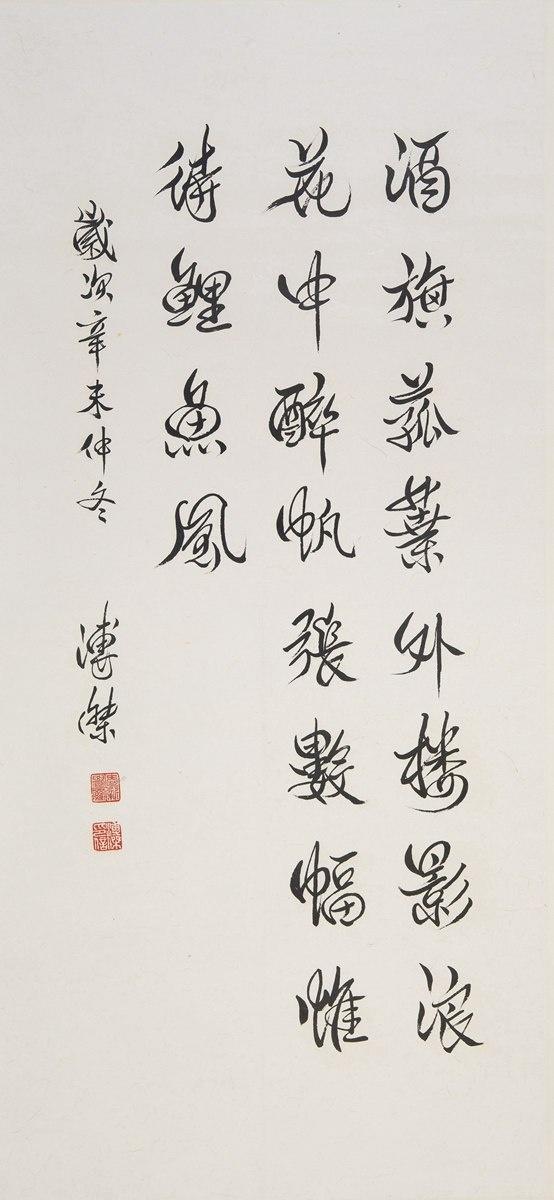 酒旗菰葉外楼影浪
花中醉帆張數幅惟
待鯉魚風
歲次辛未仲冬
溥傑